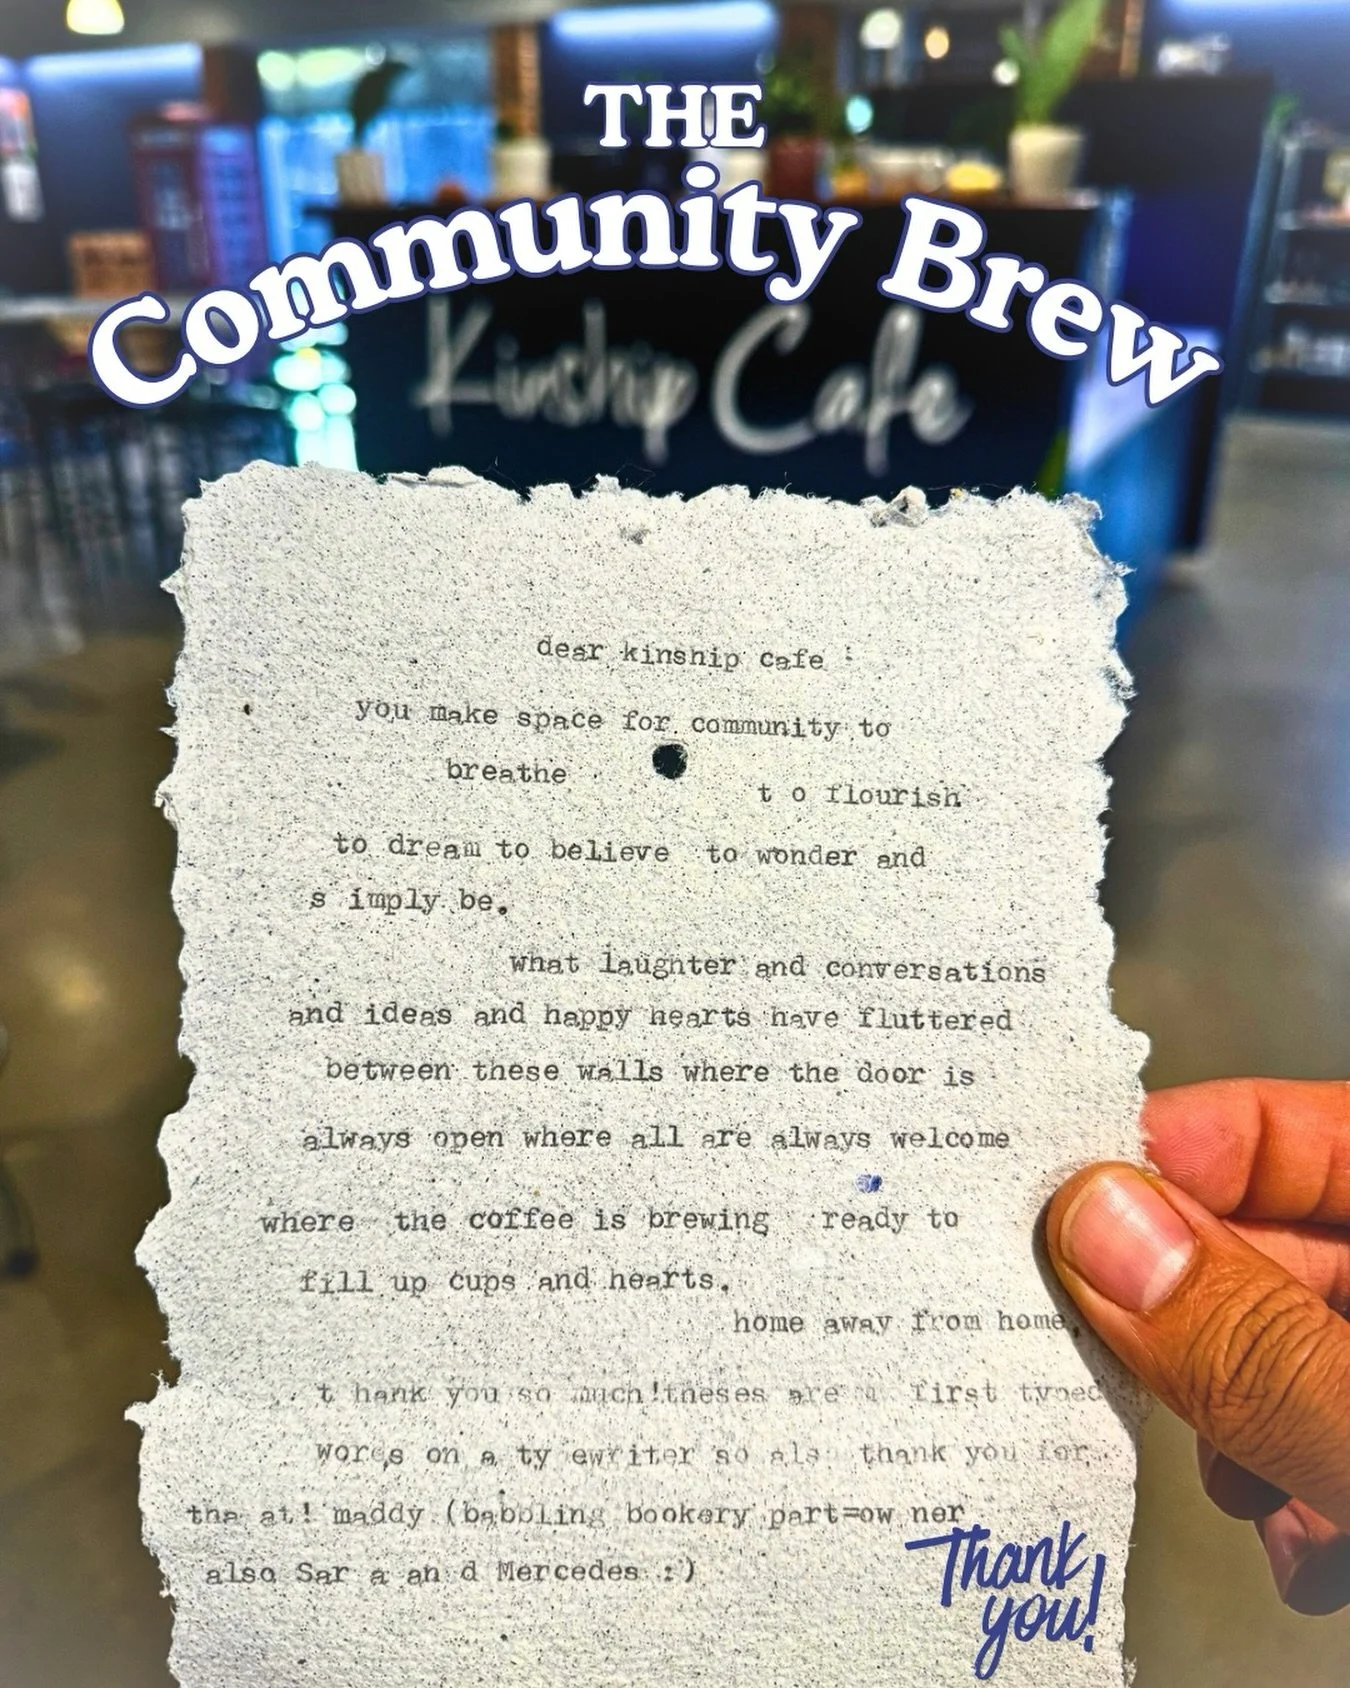 THE
Community Brew
Kinship Cafe
dear kinship cafe :
you make space for community to
breathe
t o flourish
to dream to believe to wonder and
s imply be.
what laughter and conversations
and ideas and happy hearts have fluttered
between these walls where the door is
always open where all are always welcome
where the coffee is brewing ready to
fill up cups and hearts.
home away from home
t hank you so much!theses are first typed
words on a ty ewriter so als thank you for
tha at! maddy (babbling bookery part=ow ner
also Sar a an d Mercedes :)
Thank
you!